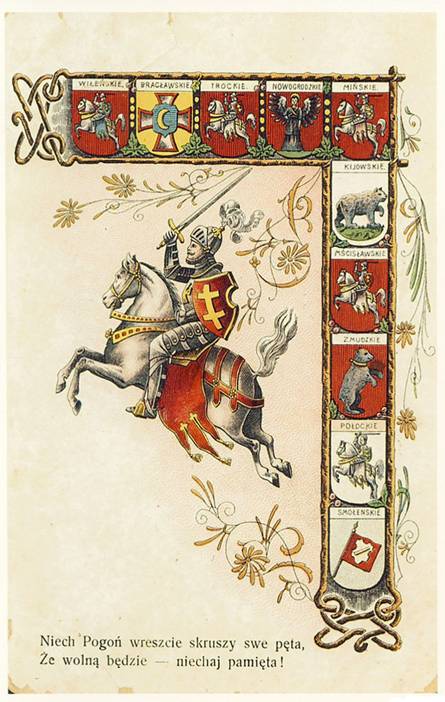 WILEŃSKIE.
BRACŁAWSKIE.
TROCKIE.
NOWOGRODZKIE.
MIŃSKIE.
KIJOWSKIE.
MŚCISŁAWSKIE.
ŻMUDZKIE.
POŁOCKIE.
SMOLEŃSKIE.
Niech Pogoń wreszcie skruszy swe pęta,
Że wolną będzie — niechaj pamięta!